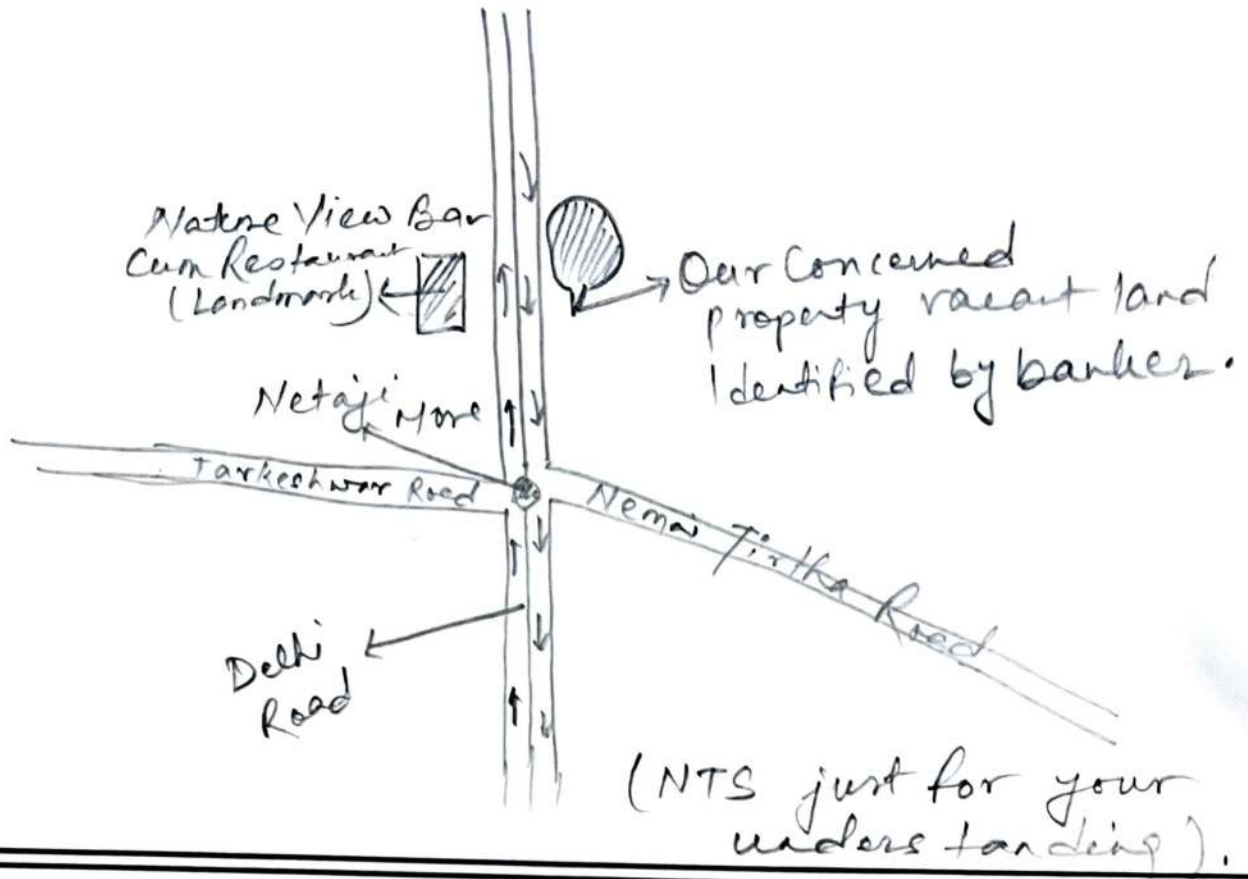 Nature View Bar
Cum Restaurant
(Landmark)
Our Concerned
property vacant land
Identified by banker.
Netaji More
Tarkeshwar Road
Nemai Tirtha Road
Delhi
Road
(NTS just for your
understanding).